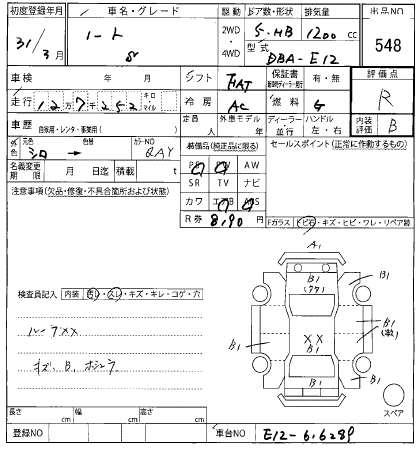 初度登録年月 車名・グレード 駆動 ドア数・形状 排気量 出品NO
31年3月 ノート S 2WD・4WD 5・HB 1200cc 548
型式 DBA-E12
車検 年 月 シフト FAT 保証書 有・無 評価点
走行 12万7千252 キロ マイル 冷房 AC 燃料 G R
車歴 自家用・レンタ・事業用( ) 定員 人 外車モデル 年 ディーラー 並行 ハンドル 左・右 内装評価 B
外色 元色 シロ → 色替 カラーNO QAY 装備品(純正品に限る) セールスポイント(正常に作動するもの)
名義変更期限 月 日迄 積載 t PS PW AW
SR TV ナビ
注意事項(欠品・修復・不具合箇所および状態) カワ エアB ABS
R券 8,90 円 Fガラス トビ石・キズ・ヒビ・ワレ・リペア跡
A1
B1 B1
検査員記入 内装 汚レ・スレ・キズ・キレ・コゲ・穴
ルーフXX B1 XX B1 B1
キズ、B、
B1
スペア
長さ cm 幅 cm 高さ cm
登録NO 車台NO E12-6,6289